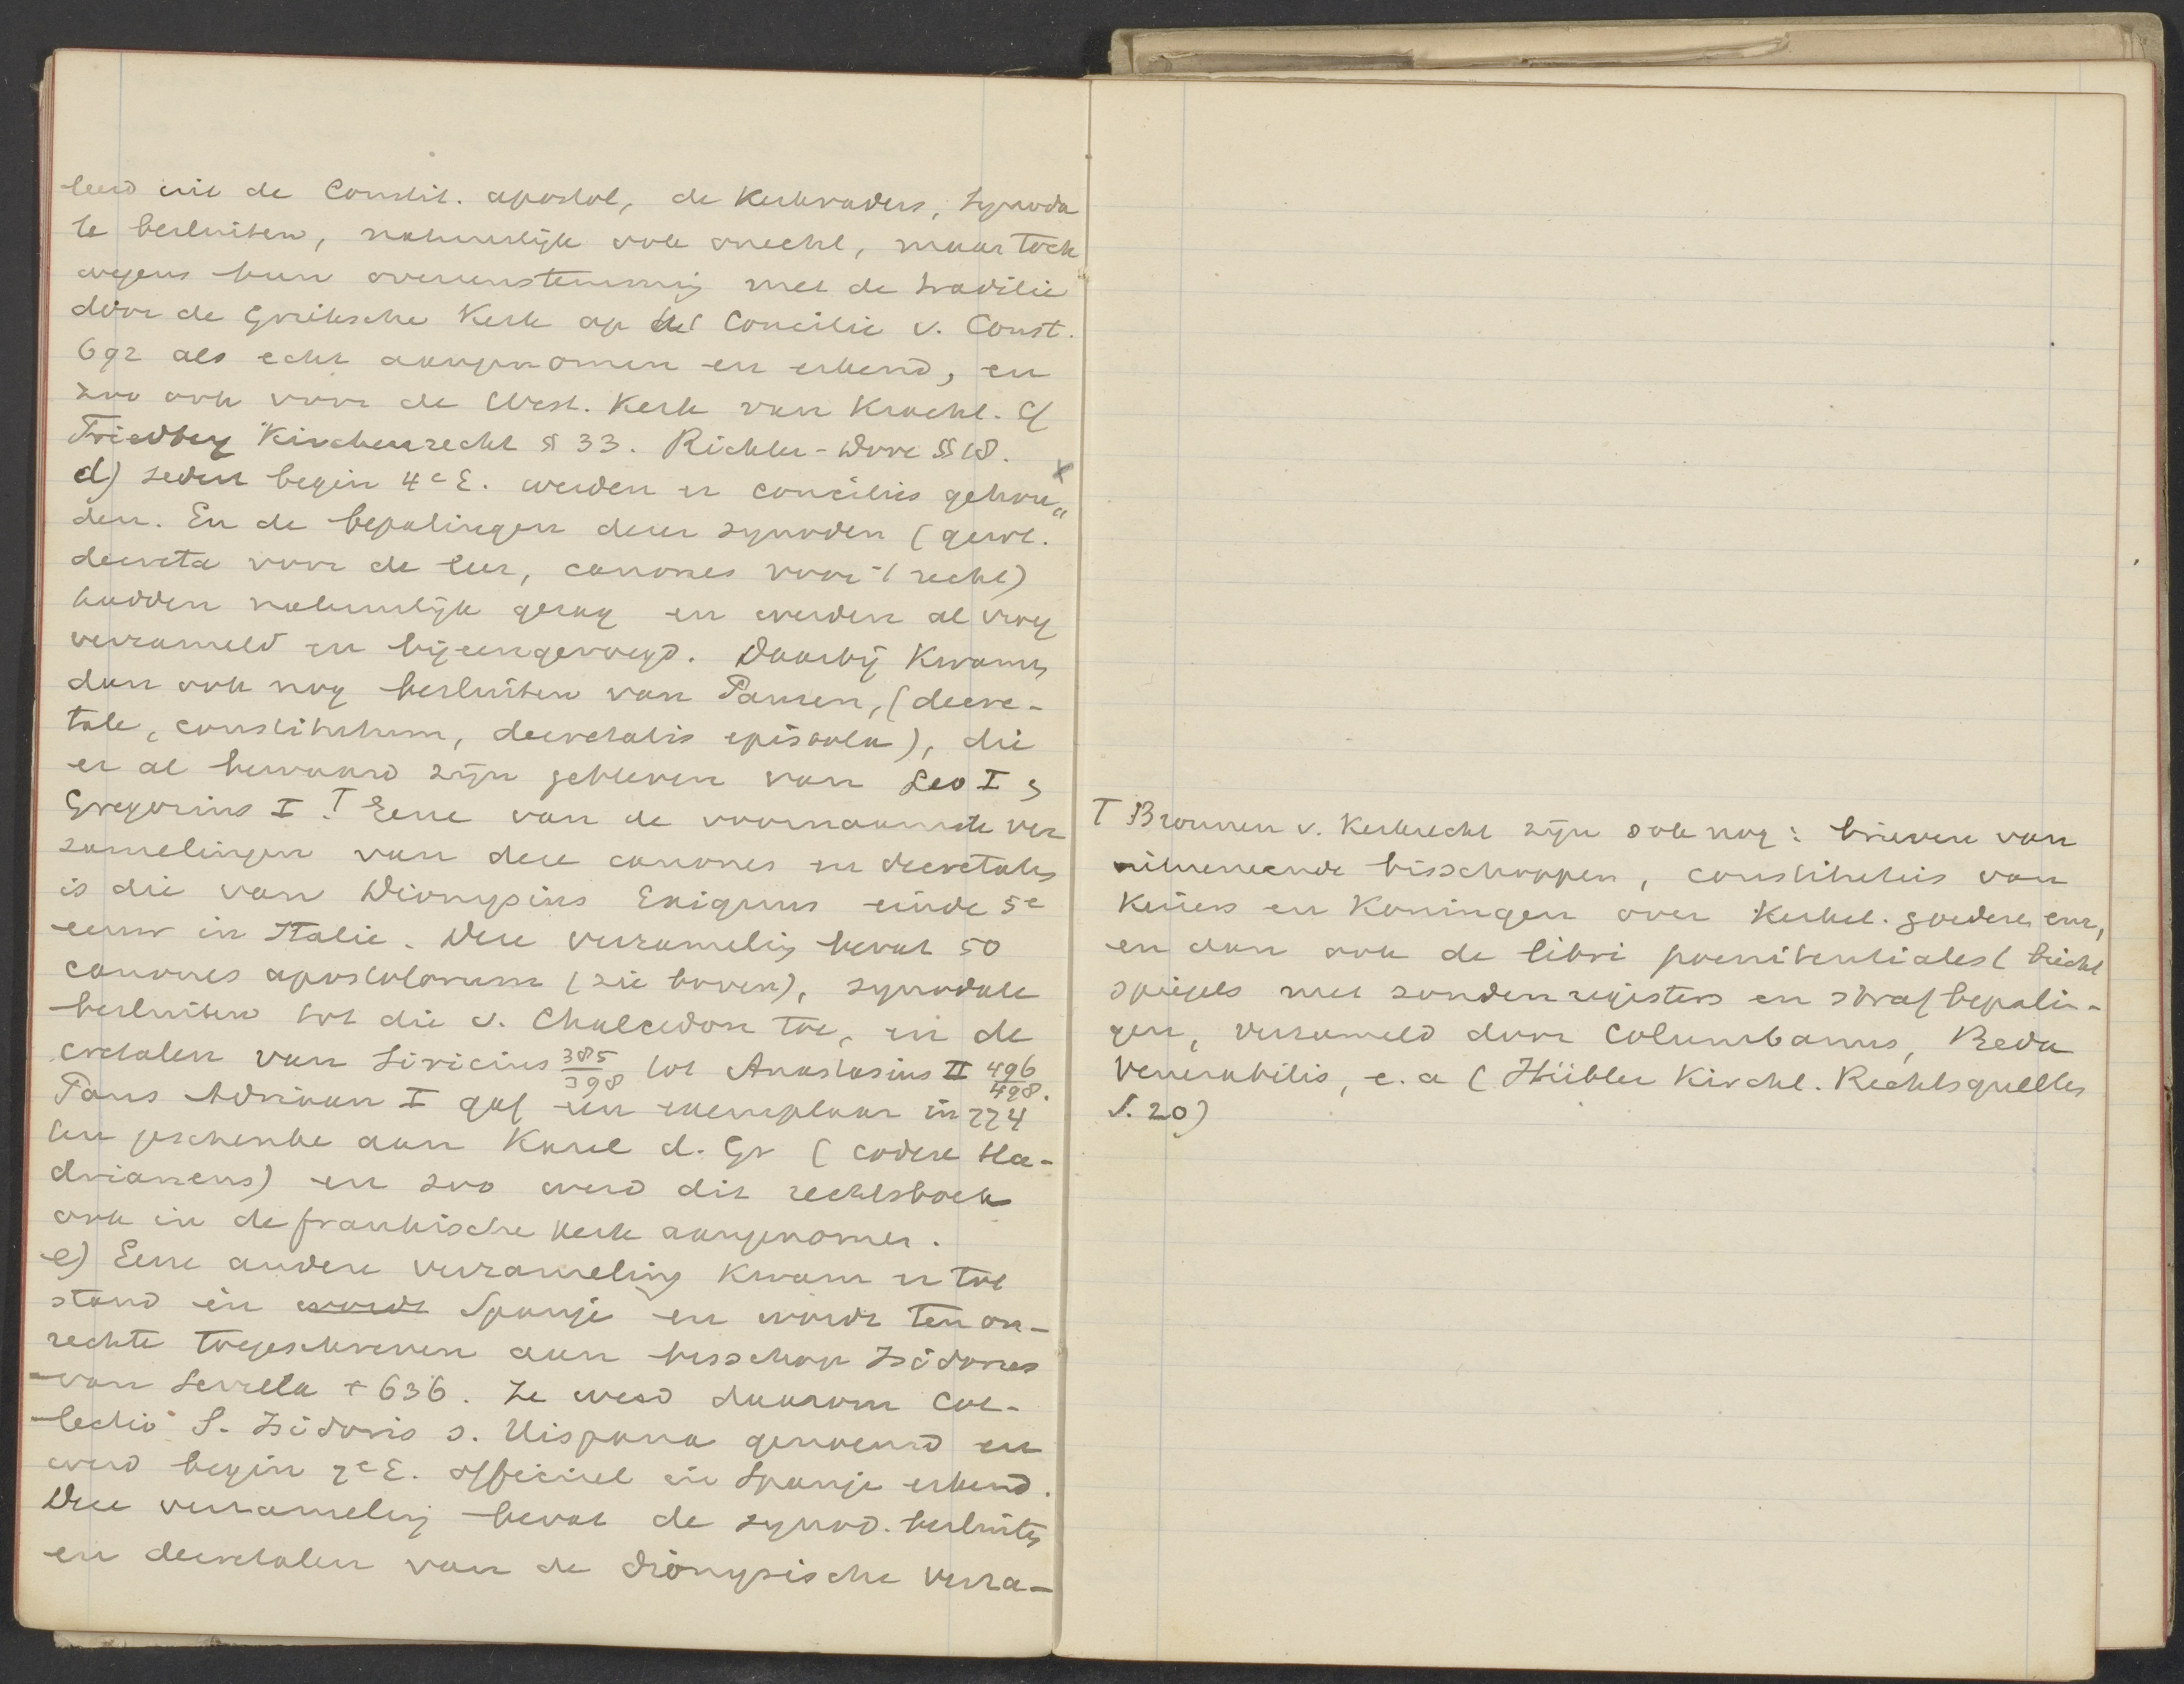 leerd uit de Constit. apostol, de Kerkvaders, Synoda
le besluiten, natuurlijk ook onecht, maar toch
wegens hun overeenstemming met de traditie
door de Grieksche Kerk op het Concilie v. Const.
692 als echt aangenomen en erkend, en
zoo ook voor de West. Kerk van Kracht. Cf
Friedberg Kirchenrecht § 33. Richter-Dove §§ 18.
d) sedert begin 4e E. werden er conciliës gehou„
den. En de bepalingen dezer synoden (gew.
decreta voor de leer, canones voor 't recht)
hadden natuurlijk gezag en werden al vroeg
verzameld en bijeengevoegd. Daarbij Kwamen
dan ook nog besluiten van Pausen, (decre-
tale, constitutum, decretalis epistola), die
er al bewaard zijn gebleven van Leo I,
Gregorius I. T Eene van de voornaamste ver
zamelingen van deze canones en decretales
is die van Dionysius Exiguus einde 5e
eeuw in Italië. Deze verzameling bevat 50
canones apostolorum (zie boven), synodale
besluiten tot die v. Chalcedon toe, en de
cretalen van Siricius 385/398 tot Anastasius II 496/498.
Paus Adriaan I gaf een exemplaar in 774
ten geschenke aan Karel d. Gr (codex Ha-
drianeus) en zoo werd dit rechtsboek
ook in de frankische kerk aangenomen.
e) Eene andere verzameling Kwam er tot
stand in wordt Spanje en wordt ten on-
rechte toegeschreven aan bisschop Isidorus
van Sevilla + 636. Ze werd daarom Col-
lectio S. Isidoris s. Hispana genoemd en
werd begin 7e E. officieel in Spanje erkend.
Deze verzameling bevat de synod. besluiten
en decretalen van de dionysische verza-
T Bronnen v. Kerkrecht zijn ook nog: brieven van
uitnemende bisschoppen, constituties van
Keizers en Koningen over Kerkel. goederen enz,
en dan ook de libri poenitentiales (biecht
spiegels met zondenregisters en strafbepalin-
gen, verzameld door Columbanus, Beda
Venerabilis, e. a (Hübler Kirchl. Rechtsquellen
S. 20)